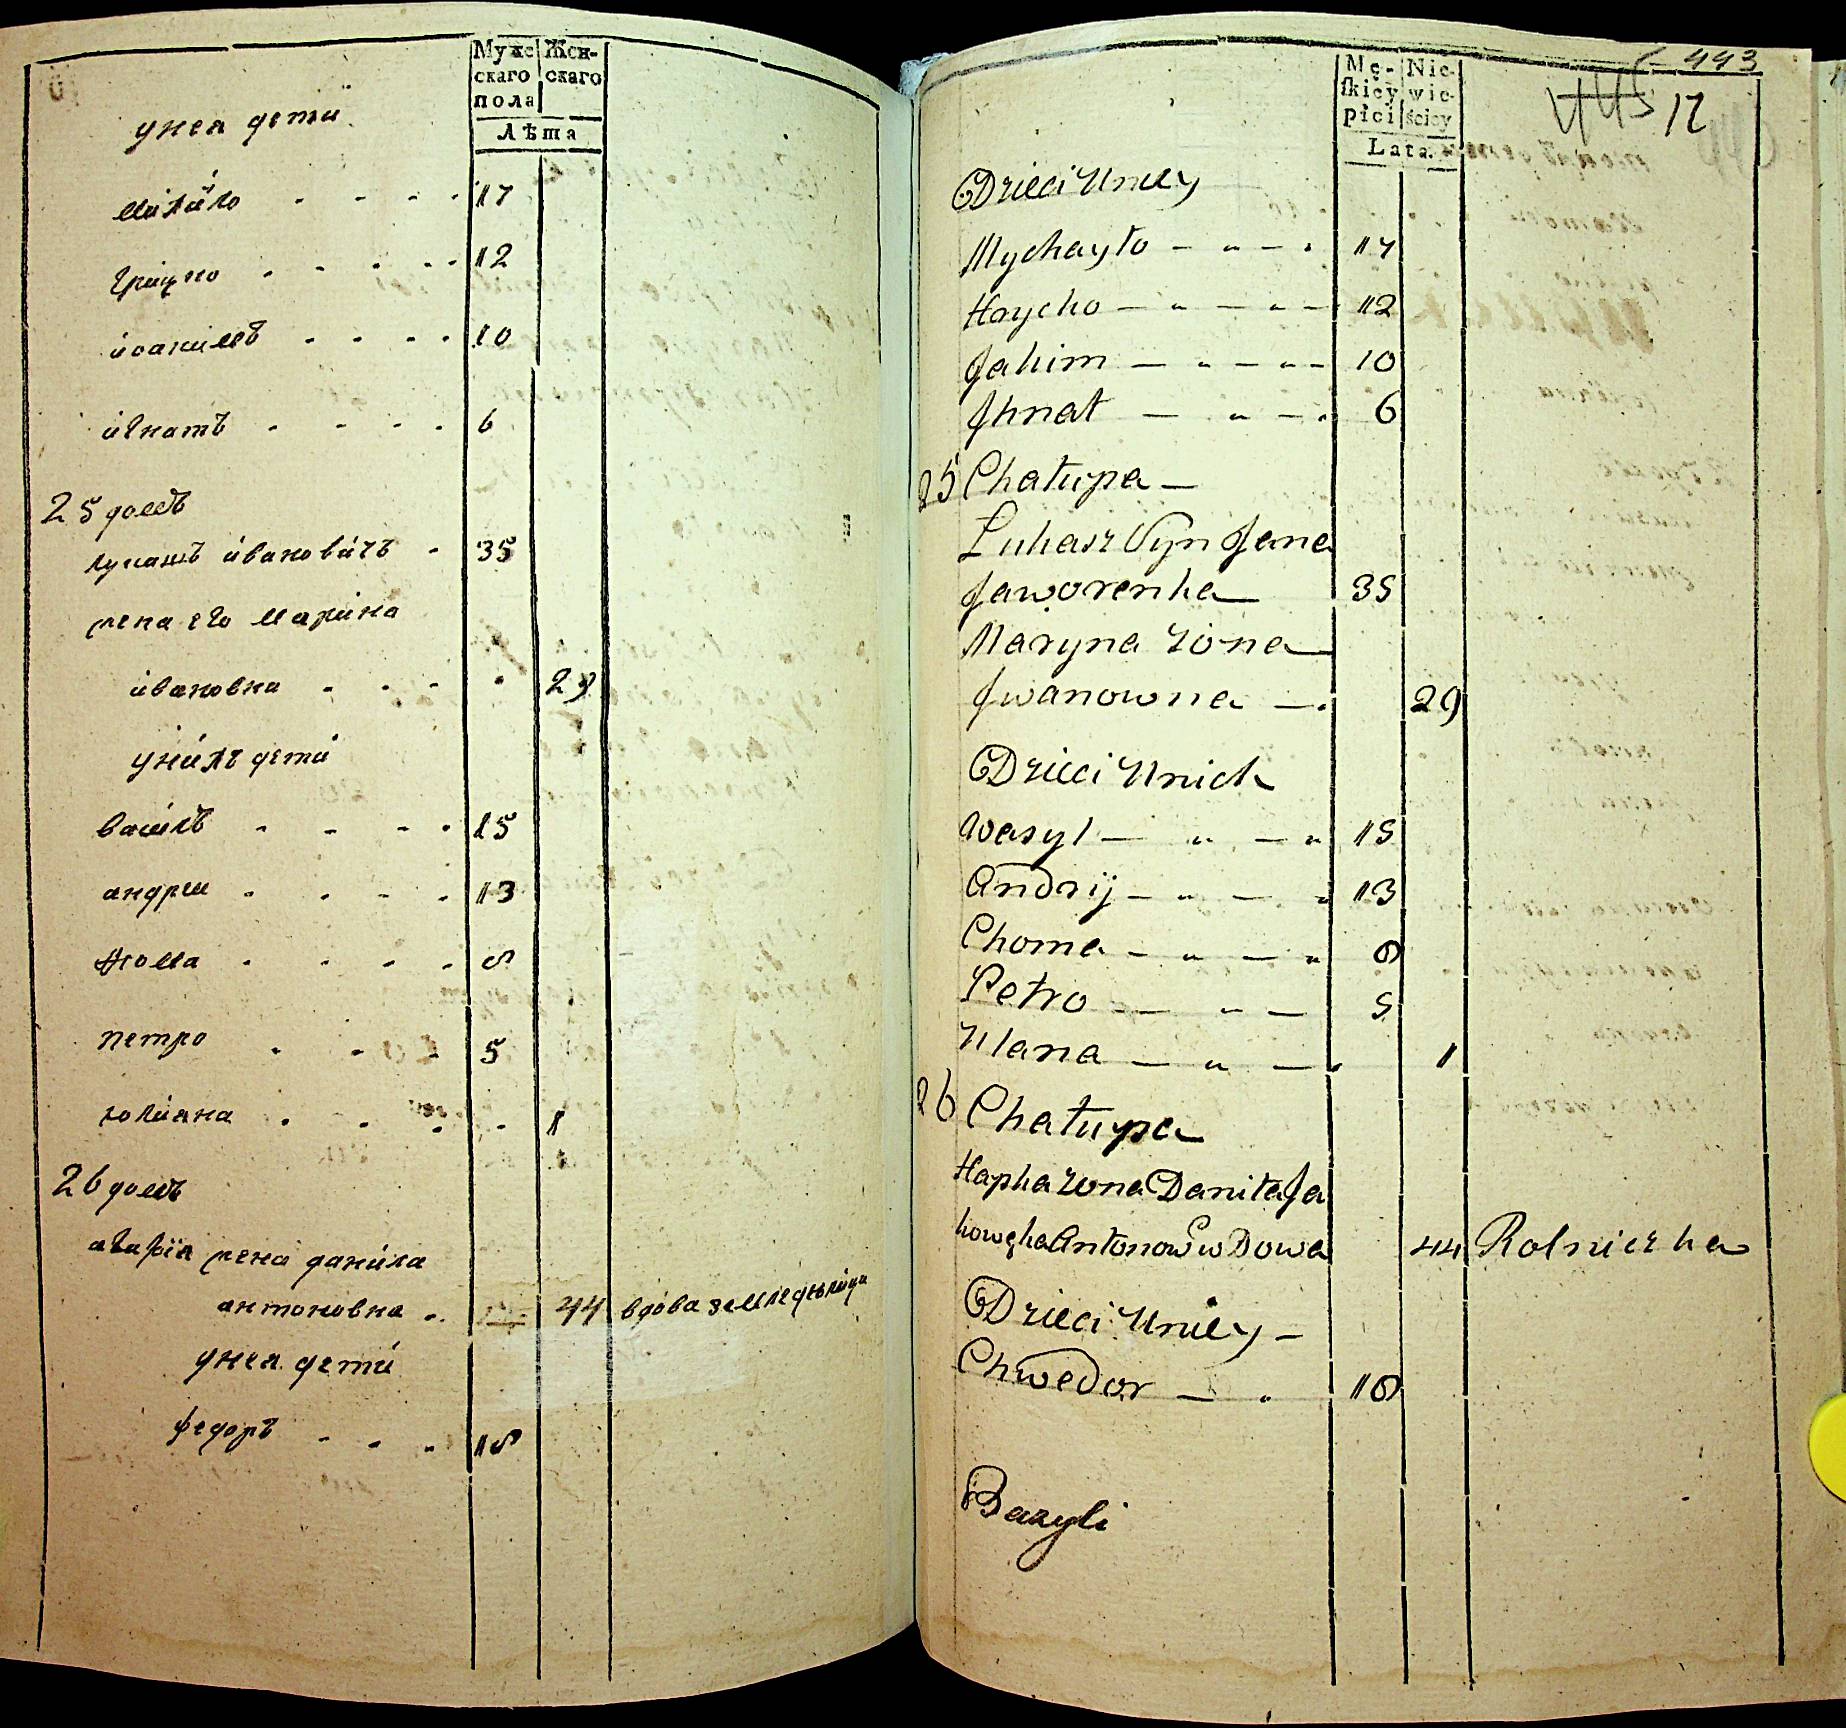 Муже Жен-
скаго скаго
пола
Лѣта
унея дети
михайло - - - - 17
грицко - - - - 12
иоакимъ - - - - 10
игнатъ - - - - 6
25 домъ
лукашъ ивановичъ - 35
жена его марина
ивановна - - - - 29
унихъ дети
василь - - - - 15
андреи - - - - 13
Фома - - - - 8
петро - - - 5
юлияна - - - - - 1
26 домъ
агафия жена данила
антоновна - . 44 вдова земледелица
унея дети
федоръ - - - 18
443
445 12
Mę- Nie-
skiey wie-
płci ściey
Lata.
Dzieci Uniey
Mychayło - „ - . 17
Hrycko - „ - „ - 12
Jakim - „ - „ - 10
Jhnat - „ - . 6
25 Chałupa -
Łukasz Syn Jana
Jaworenka 35
Maryna żona
Jwanowna - . 29
Dzieci Unich
Wasyl - „ - „ 15
Andrij - „ - „ 13
Choma - „ - „ 8
Petro - „ - 5
Ulana - „ - . 1
26 Chałupa
Hapka żona Daniła Ja
Antonow Wdowa 44 Rolniczka
Dzieci Uniey -
Chwedor - . 18
Bazyli